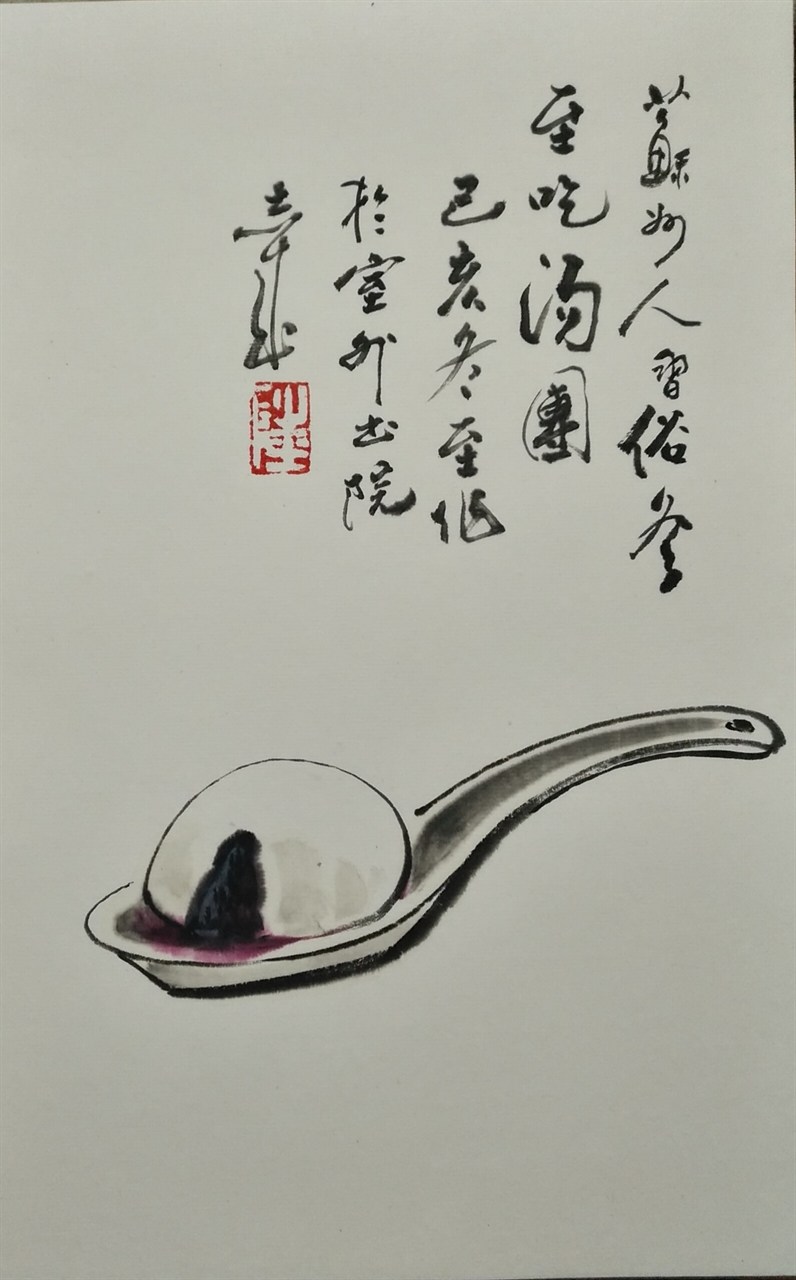 蘇州人習俗冬
至吃湯團
己亥冬至作
於室外書院